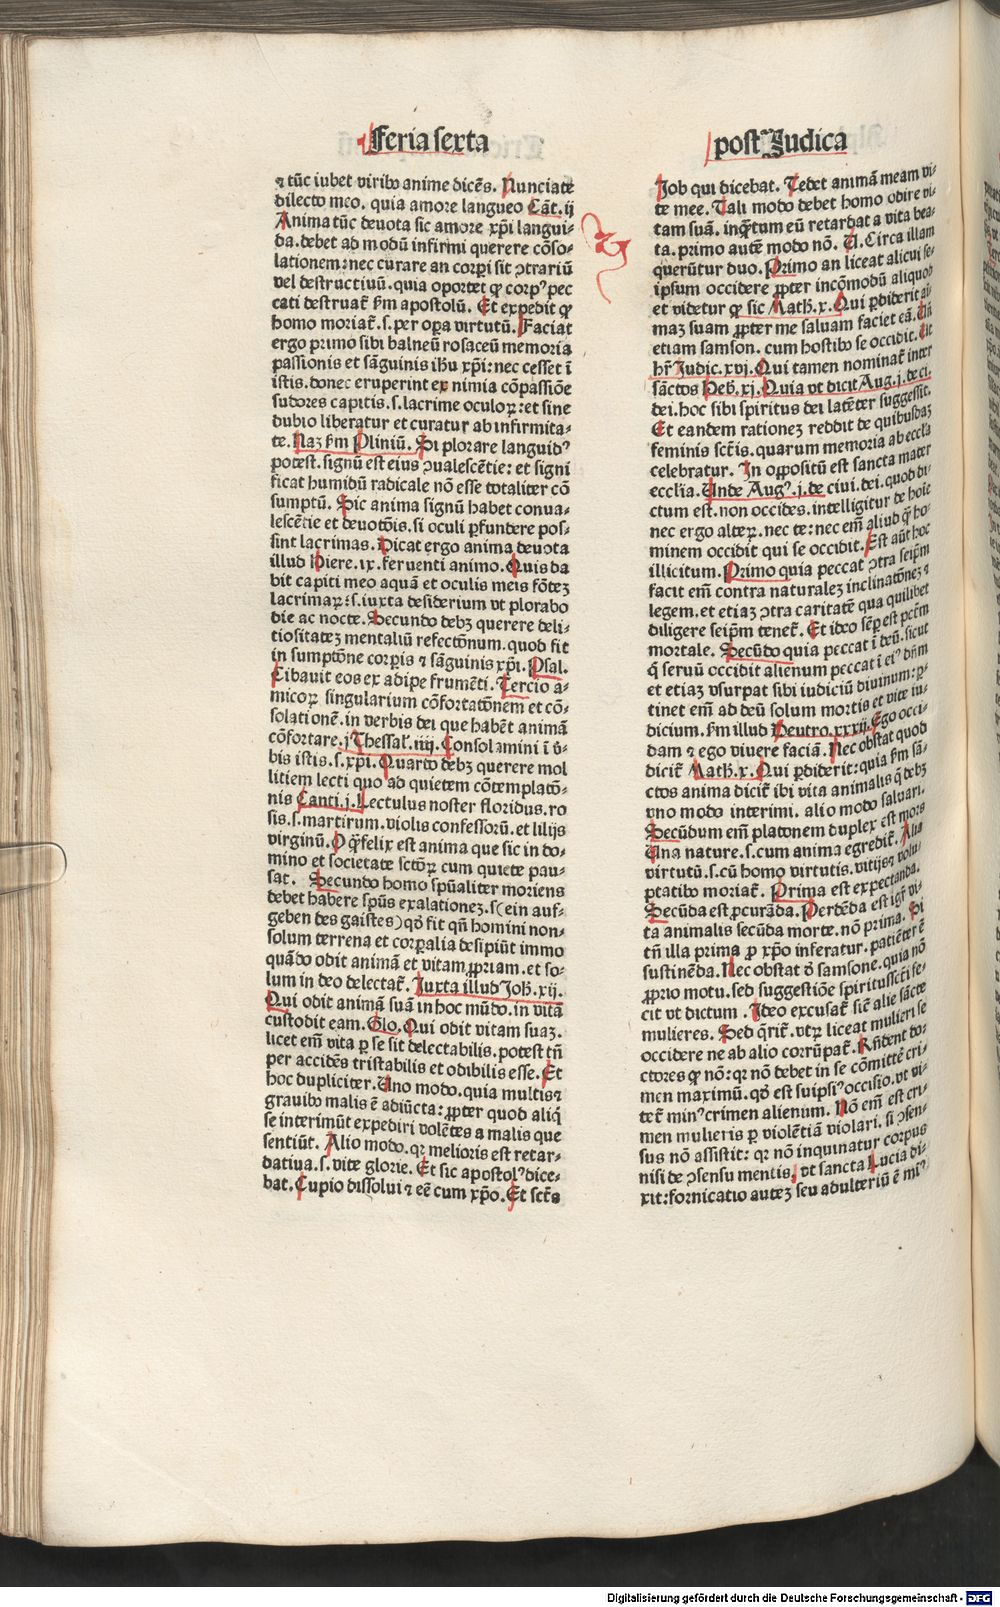 Feria sexta
⁊ tūc iubet viribꝰ anime dicēs. Nunciate
dilecto meo. quia amore langueo Cāt. ij
Anima tūc deuota sic amore xp̄i langui⸗
da. debet ad modū infirmi querere cōso⸗
lationem: nec curare an corp̄i sit ꝯtrariū
vel destructiuū. quia oportet ꝙ corpꝰ pec
cati destruat̄ ẜm apostolū. Et expedit ꝙ
homo moriat̄. s. per oꝑa virtutū. Faciat
ergo primo sibi balneū rosaceū memoria
passionis et sāguinis ih̄u xp̄i: nec cesset ī
istis. donec eruperint ex nimia cōpassiōe
sudores capitis. s. lacrime oculoꝝ: et sine
dubio liberatur et curatur ab infirmita⸗
te. Naꝫ ẜm Pliniū. Si plorare languidꝰ
potest. signū est eius ꝯualescētie: et signi
ficat humidū radicale nō esse totaliter cō
sumptū. Sic anima signū habet conua⸗
lescētie et deuotōis. si oculi ꝑfundere pos⸗
sint lacrimas. Dicat ergo anima deuota
illud Hiere. ix. feruenti animo. Quis da
bit capiti meo aquā et oculis meis fōteꝫ
lacrimaꝝ: s. iuxta desiderium vt plorabo
die ac nocte. Secundo debꝫ querere deli⸗
tiositateꝫ mentaliū refectōnum. quod fit
in sumptōne corꝑis ⁊ sāguinis xp̄i. Psal.
Cibauit eos ex adipe frumēti. Tercio a⸗
micoꝝ singularium cōfortatōnem et cō⸗
solationē. in verbis dei que habēt animā
cōfortare. j Thessal̄. iiij. Consolamini ī v̄⸗
bis istis. s. xp̄i. Quarto debꝫ querere mol
litiem lecti quo ad quietem cōtemplatō⸗
nis Canti. j. Lectulus noster floridus. ro
sis. s. martirum. violis confessorū. et lilijs
virginū. O ꝙ̄ felix est anima que sic in do⸗
mino et societate sctōꝝ cum quiete pau⸗
sat. Secundo homo spūaliter moriens
debet habere spūs exalationeꝫ. s (ein auf⸗
geben des gaistes) qd̄ fit qn̄ homini non⸗
solum terrena et corꝑalia desipiūt immo
quādo odit animā et vitam ꝓpriam. et so⸗
lum in deo delectat̄. Iuxta illud Joh̄. xij.
Qui odit animā suā in hoc mūdo. in vitā
custodit eam. Glo. Qui odit vitam suaꝫ.
licet em̄ vita ꝑ se sit delectabilis. potest tn̄
per accidēs tristabilis et odibilis esse. Et
hoc dupliciter. Uno modo. quia multis ⁊
grauibꝰ malis ē adiūcta: ꝓpter quod aliq̄
se interimūt expediri volētes a malis que
sentiūt. Alio modo. qꝛ melioris est retar⸗
datiua. s. vite glorie. Et sic apostolꝰ dice⸗
bat. Cupio dissolui ⁊ eē cum xp̄o. Et sct̄s
post Judica
Job qui dicebat. Tedet animā meam vi⸗
te mee. Tali modo debet homo odire vi⸗
tam suā. inq̄tum eū retardat a vita bea⸗
ta. primo autē modo nō. U. Circa illam
querūtur duo. Primo an liceat alicui se⸗
ipsum occidere ꝓpter incōmodū aliquod
et videtur ꝙ sic Math̄. x. Qui ꝑdiderit ai⸗
maꝫ suam ꝓpter me saluam faciet eā. Un̄
etiam samson. cum hostibꝰ se occidit. Ut
hr̄ Judic. xvj. Qui tamen nominat̄ inter
sāctos Heb̄. xj. Quia vt dicit Aug. j. de ci.
dei. hoc sibi spiritus dei latēter suggessit.
Et eandem rationeꝫ reddit de quibusdaꝫ
feminis sct̄is. quarum memoria ab eccl̄a
celebratur. In oppositū est sancta mater
ecclīa. Unde Augꝰ. j. de ciui. dei. quod di⸗
ctum est. non occides. intelligitur de hoīe
nec ergo alteꝝ. nec te: nec em̄ aliud q̄ ho⸗
minem occidit qui se occidit. Est aūt hoc
illicitum. Primo quia peccat ꝯtra seip̄m
facit em̄ contra naturaleꝫ inclinatōneꝫ ⁊
legem. et etiaꝫ ꝯtra caritatē qua quilibet
diligere seip̄m tenet̄. Et ideo sēꝑ est pct̄m
mortale. Secūdo quia peccat ī deū. sicut
q̄ seruū occidit alienum peccat ī eiꝰ dn̄m
et etiaꝫ vsurpat sibi iudiciū diuinum: ꝑ⸗
tinet em̄ ad deū solum mortis et vite iu⸗
dicium. ẜm illud Deutro. xxxij. Ego occi⸗
dam ⁊ ego viuere faciā. Nec obstat quod
dicit̄ Math̄. x. Qui ꝑdiderit: quia ẜm sā⸗
ctos anima dicit̄ ibi vita animalis q̄ debꝫ
vno modo interimi. alio modo saluari.
Secūdum em̄ platonem duplex est mors
Una nature. s. cum anima egredit̄. Alia
virtutū. s. cū homo virtutis. vitijsꝫ volu⸗
ptatibꝰ moriat̄. Prima est expectanda.
Secūda est ꝓcurāda. Perdēda est igr̄ vi⸗
ta animalis secūda morte. nō prima. Si
tn̄ illa prima ꝑ xp̄o inferatur. patiēter ē
sustinēda. Nec obstat d̄ samsone. quia nō
ꝓprio motu. sed suggestiōe spiritussctī fe⸗
cit vt dictum. Ideo excusat̄ sicē alie sācte
mulieres. Sed q̄rit̄. vtꝝ liceat mulieri se
occidere ne ab alio corrūpat̄. Rn̄dent do⸗
ctores ꝙ nō: qꝛ nō debet in se cōmittē cri⸗
men maximū. qd̄ est suipsiꝰ occisio. vt vi⸗
tet̄ minꝰ crimen alienum. Nō em̄ est cri⸗
men mulieris ꝑ violētiā violari. si ꝯsen⸗
sus nō assistit: qꝛ nō inquinatur corpus
nisi de ꝯsensu mentis. vt sancta Lucia di⸗
xit: fornicatio auteꝫ seu adulteriū ē miꝰ
Digitalisierung gefördert durch die Deutsche Forschungsgemeinschaft - DFG